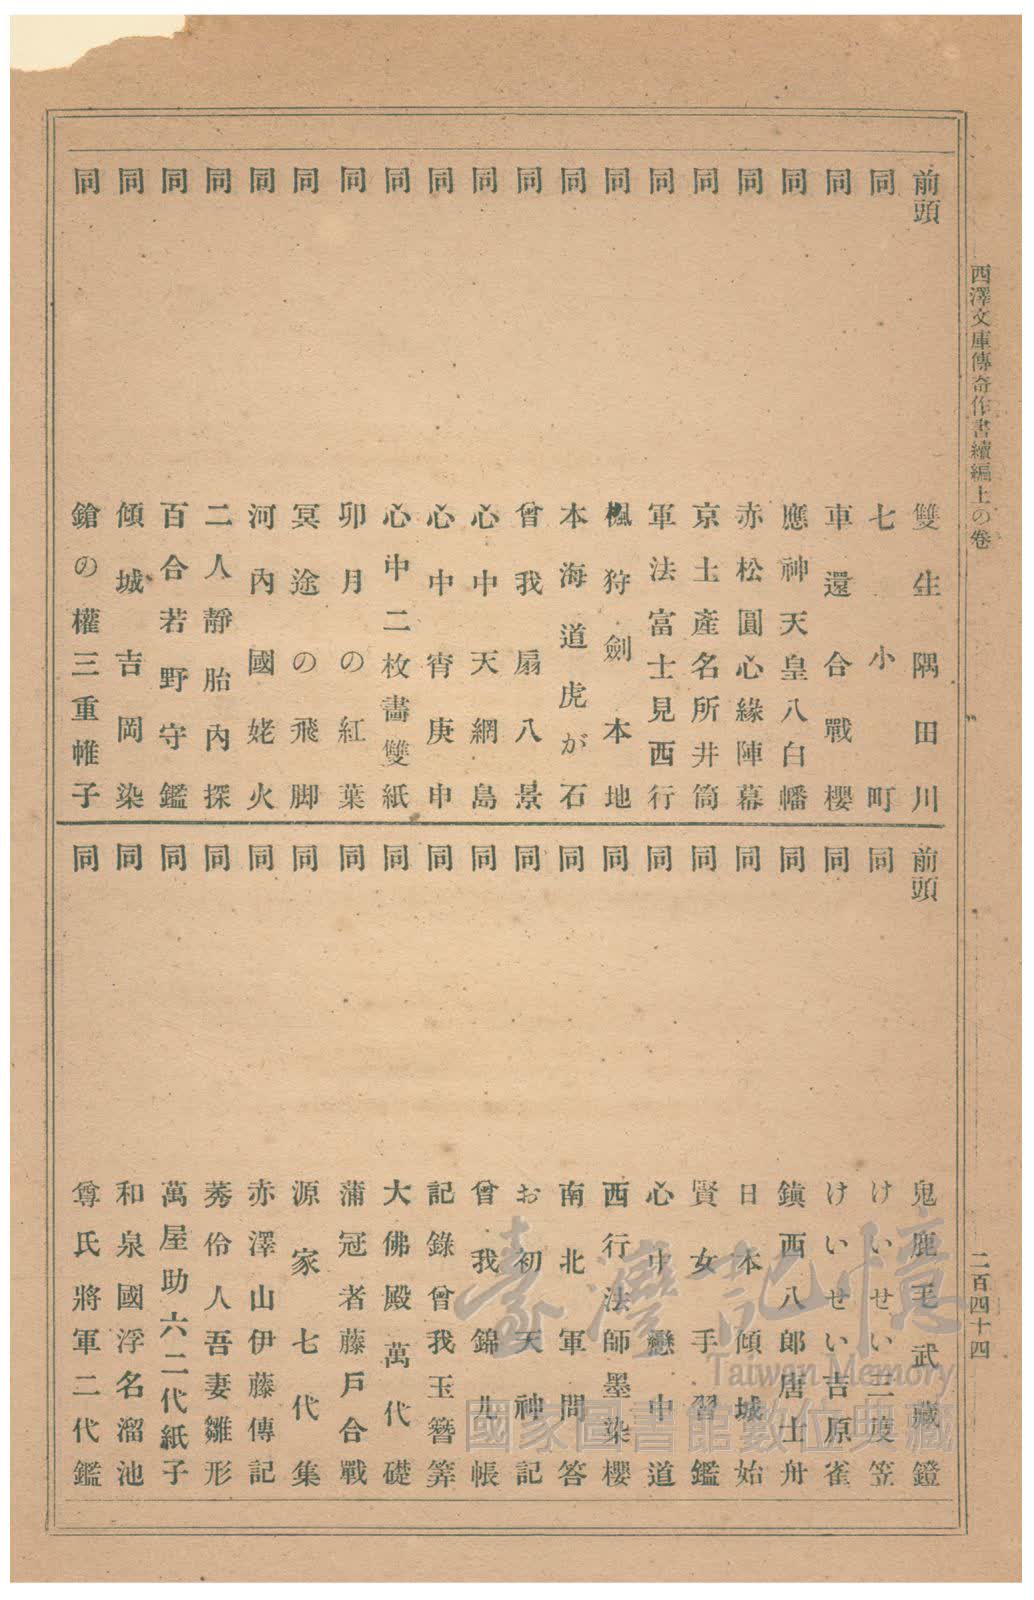 西澤文庫傳奇作書續編上の卷
前頭 雙生隅田川
同 七小町
同 車還合戰櫻
同 應神天皇八白幡
同 赤松圓心緣陣幕
同 京土產名所井筒
同 軍法富士見西行
同 楓狩劍本地
同 本海道虎が石
同 曾我扇八景
同 心中天網島
同 心中宵庚申
同 心中二枚畵雙紙
同 卯月の紅葉
同 冥途の飛脚
同 河內國姥火
同 二人靜胎內探
同 百合若野守鑑
同 傾城吉岡染
同 鎗の權三重帷子
前頭 鬼鹿毛武藏鐙
同 けいせい三度笠
同 けいせい吉原雀
同 鎭西八郞唐士舟
同 日本傾城始
同 賢女手習鑑
同 心中戀中道
同 西行法師墨染櫻
同 南北軍問答
同 お初天神記
同 曾我錦几帳
同 記錄曾我玉簪筓
同 大佛殿萬代礎
同 蒲冠者藤戶合戰
同 源家七代集
同 赤澤山伊藤傳記
同 莠伶人吾妻雛形
同 萬屋助六二代紙子
同 和泉國浮名溜池
同 尊氏將軍二代鑑
二百四十四
臺灣記憶
Taiwan Memory
國家圖書館數位典藏